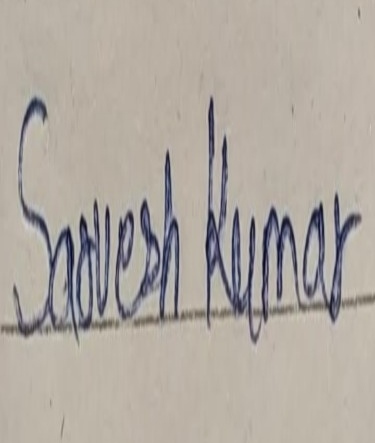 Sarvesh Kumar